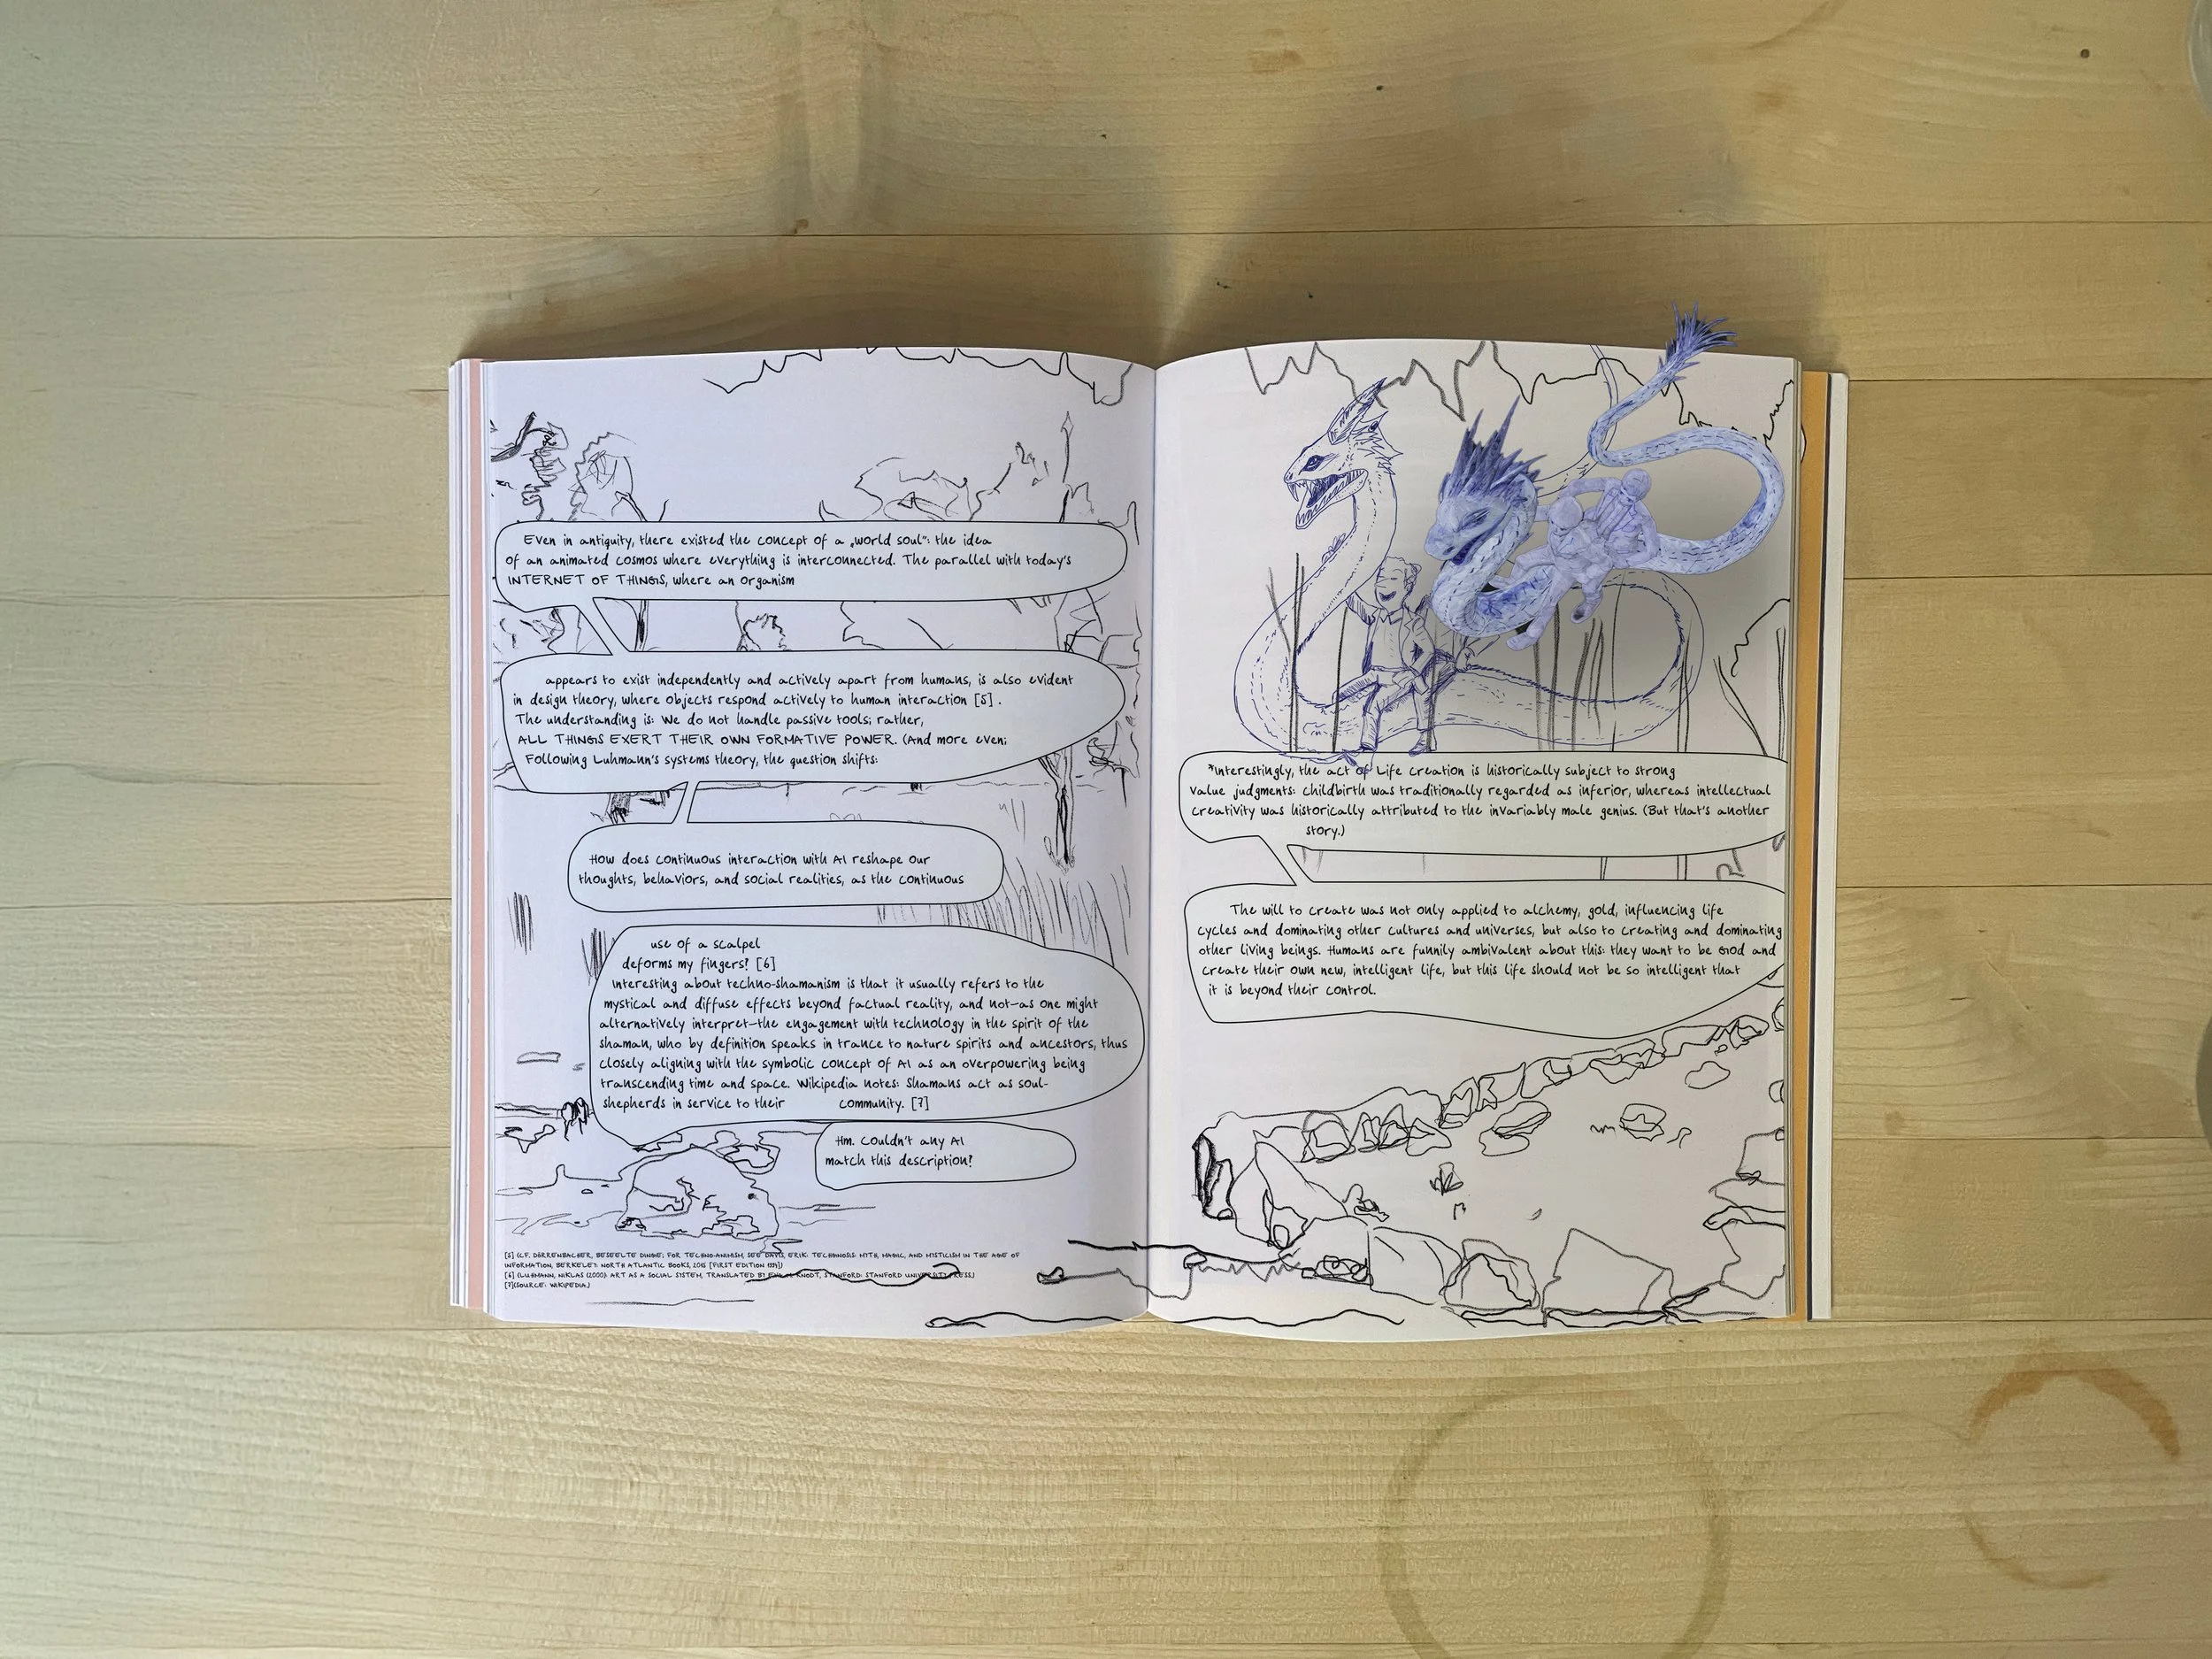 Even in antiquity, there existed the concept of a „world soul": the idea
of an animated cosmos where everything is interconnected. The parallel with today's
INTERNET OF THINGS, where an organism
appears to exist independently and actively apart from humans, is also evident
in design theory, where objects respond actively to human interaction [5].
The understanding is: We do not handle passive tools; rather,
ALL THINGS EXERT THEIR OWN FORMATIVE POWER. (And more even:
Following Luhmann's systems theory, the question shifts:
How does continuous interaction with AI reshape our
thoughts, behaviors, and social realities, as the continuous
use of a scalpel
deforms my fingers? [6]
Interesting about techno-shamanism is that it usually refers to the
mystical and diffuse effects beyond factual reality, and not—as one might
alternatively interpret—the engagement with technology in the spirit of the
shaman, who by definition speaks in trance to nature spirits and ancestors, thus
closely aligning with the symbolic concept of AI as an overpowering being
transcending time and space. Wikipedia notes: Shamans act as soul-
shepherds in service to their community. [7]
Hm. Couldn't any AI
match this description?
[5] (CF. DÖRRENBACHER, BESEELTE DINGE; FOR TECHNO-ANIMISM, SEE DAVIS, ERIK: TECHGNOSIS: MYTH, MAGIC, AND MISTICISM IN THE AGE OF
INFORMATION, BERKELEY: NORTH ATLANTIC BOOKS, 2015 [FIRST EDITION 1971])
[6] (LUHMANN, NIKLAS (2000): ART AS A SOCIAL SYSTEM, TRANSLATED BY KNODT, STANFORD: STANFORD UNIVERSITY PRESS.)
[7](SOURCE: WIKIPEDIA.)
*Interestingly, the act of Life creation is historically subject to strong
value judgments: Childbirth was traditionally regarded as inferior, whereas intellectual
creativity was historically attributed to the invariably male genius. (But that's another
story.)
The will to create was not only applied to alchemy, gold, influencing life
cycles and dominating other cultures and universes, but also to creating and dominating
other living beings. Humans are funnily ambivalent about this: they want to be God and
create their own new, intelligent life, but this life should not be so intelligent that
it is beyond their control.